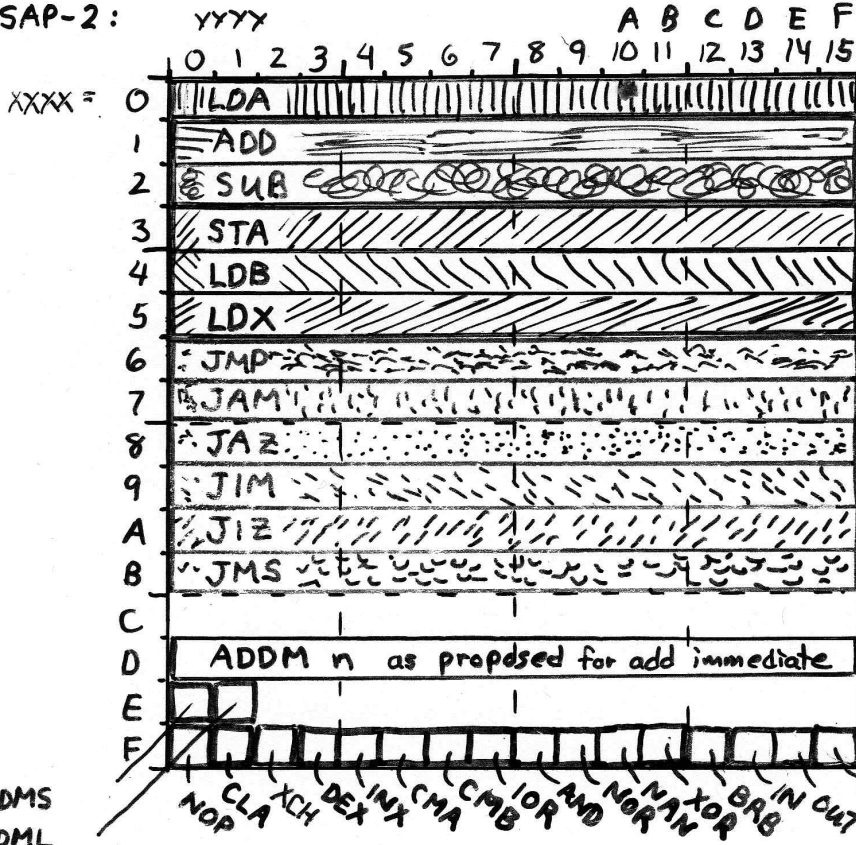 SAP-2: YYYY A B C D E F
0 1 2 3 4 5 6 7 8 9 10 11 12 13 14 15
XXXX = 0 LDA
1 ADD
2 SUB
3 STA
4 LDB
5 LDX
6 JMP
7 JAM
8 JAZ
9 JIM
A JIZ
B JMS
C
D ADDM n as proposed for add immediate
E
F
NOP CLA XCH DEX INX CMA CMB IOR AND NOR NAN XOR BRB IN OUT
DMS
DML